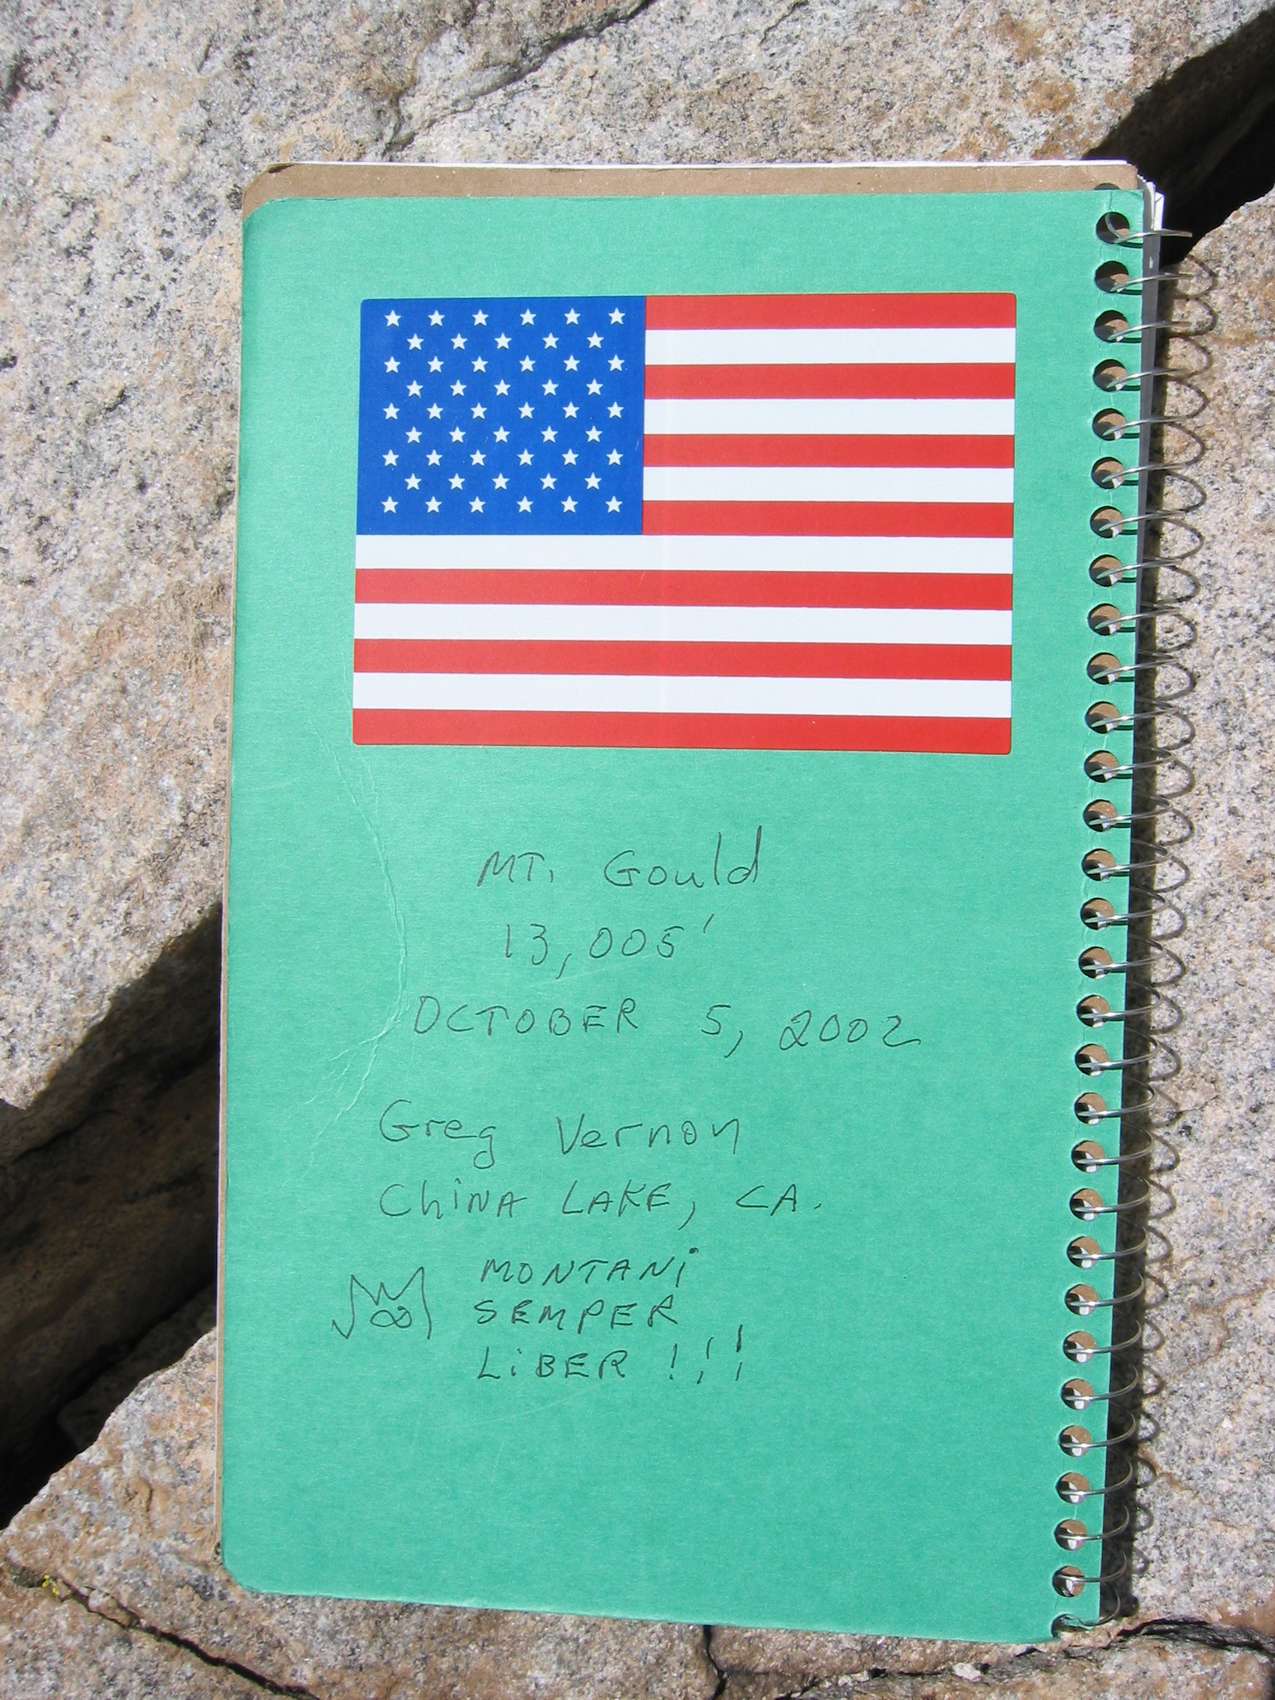 MT. Gould
13,005'
OCTOBER 5, 2002
Greg Vernon
CHiNA LAKE, CA.
MONTANi
SEMPER
LiBER !!!